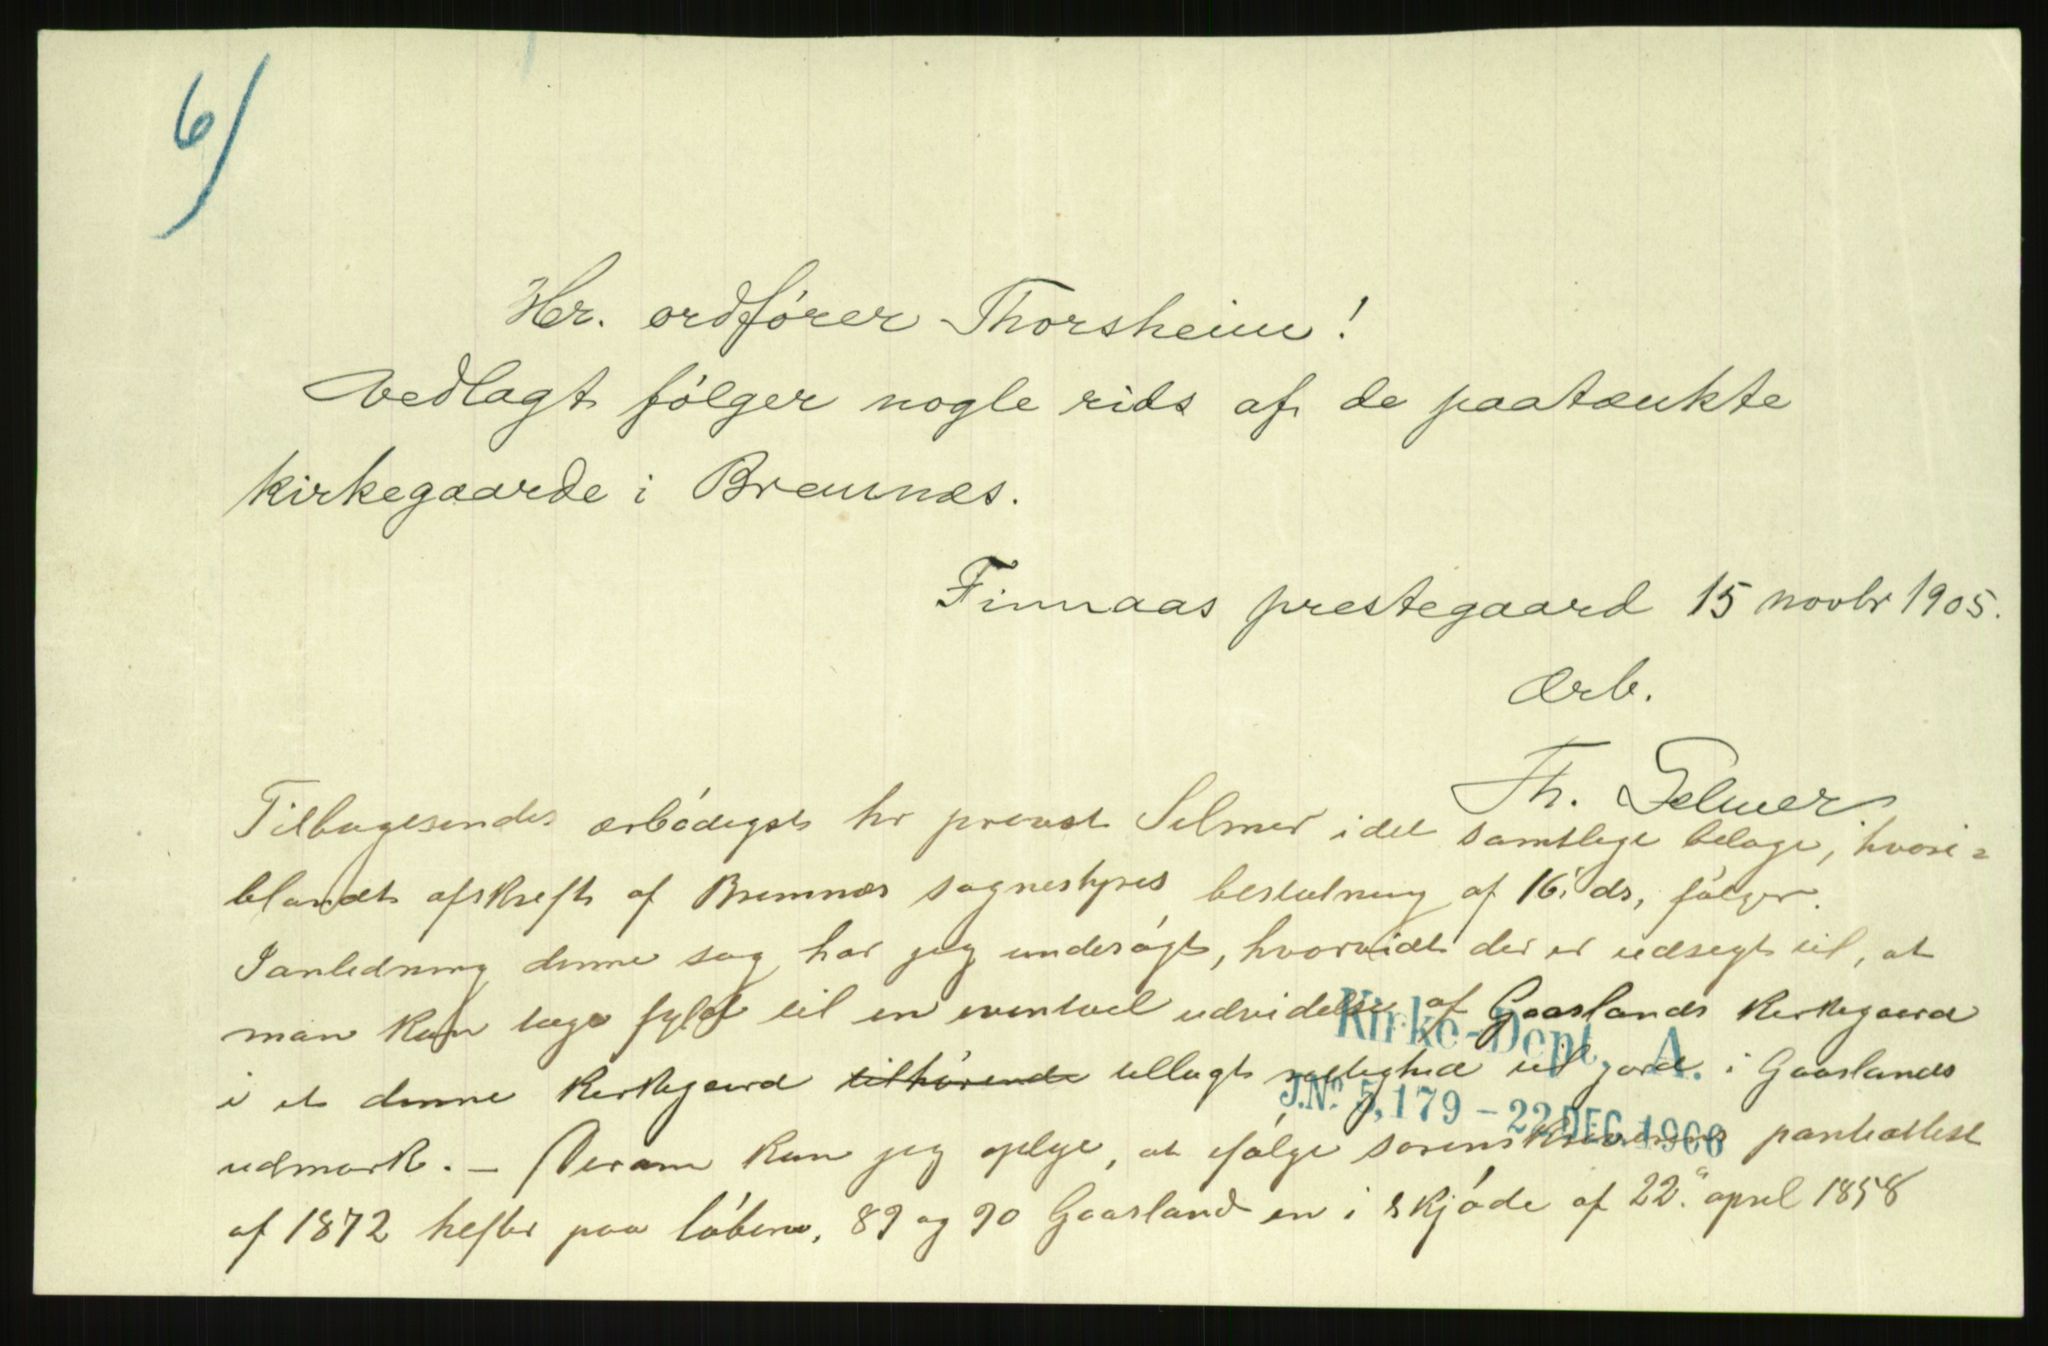 6)
Hr. ordfører Thorsheim!
Vedlagt følger nogle rids af de paatænkte
kirkegaarde i Bremnæs.
Finnaas prestegaard 15 novbr 1905.
Ærb.
Th. Selmer
Tilbagesendes ærbødigst hr provst Selmer idet samtlige bilage, hvori=
blandt afskrift af Bremnæs sognestyres beslutning af 16. ds, følger.
I anledning denne sag har jeg undersøgt, hvorvidt der er udsegt til, at
man kan tage fyld til en eventuel udvidelse af Gaaslands kirkegaard
i et denne kirkegaard tilhørende tillagt rettighed til jord i Gaaslands
Kirke-Dept. A.
J.No. 5,179 - 22 DEC. 1906
udmark. – Derom kan jeg oplyse, at ifølge sorenskriverens panteattest
af 1872 hefter paa løbene. 89 og 90 Gaasland en i skjøde af 22. april 1858